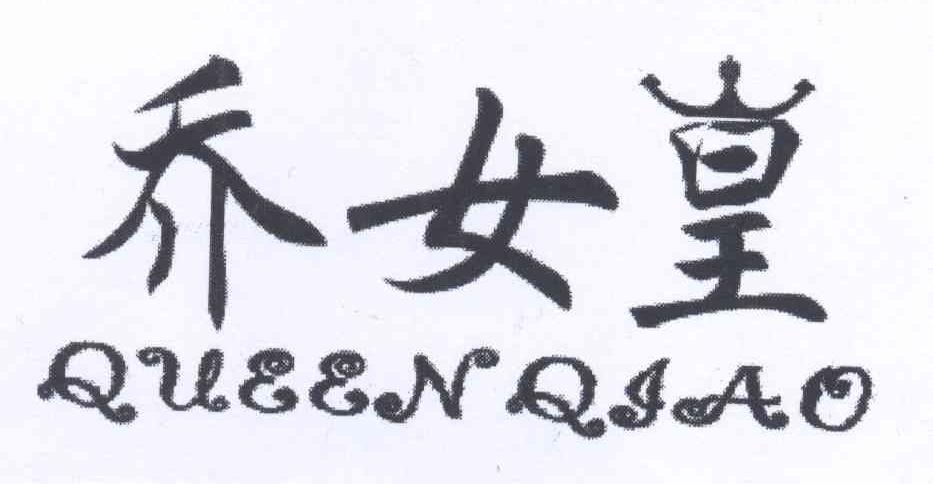 乔女皇
QUEEN QIAO